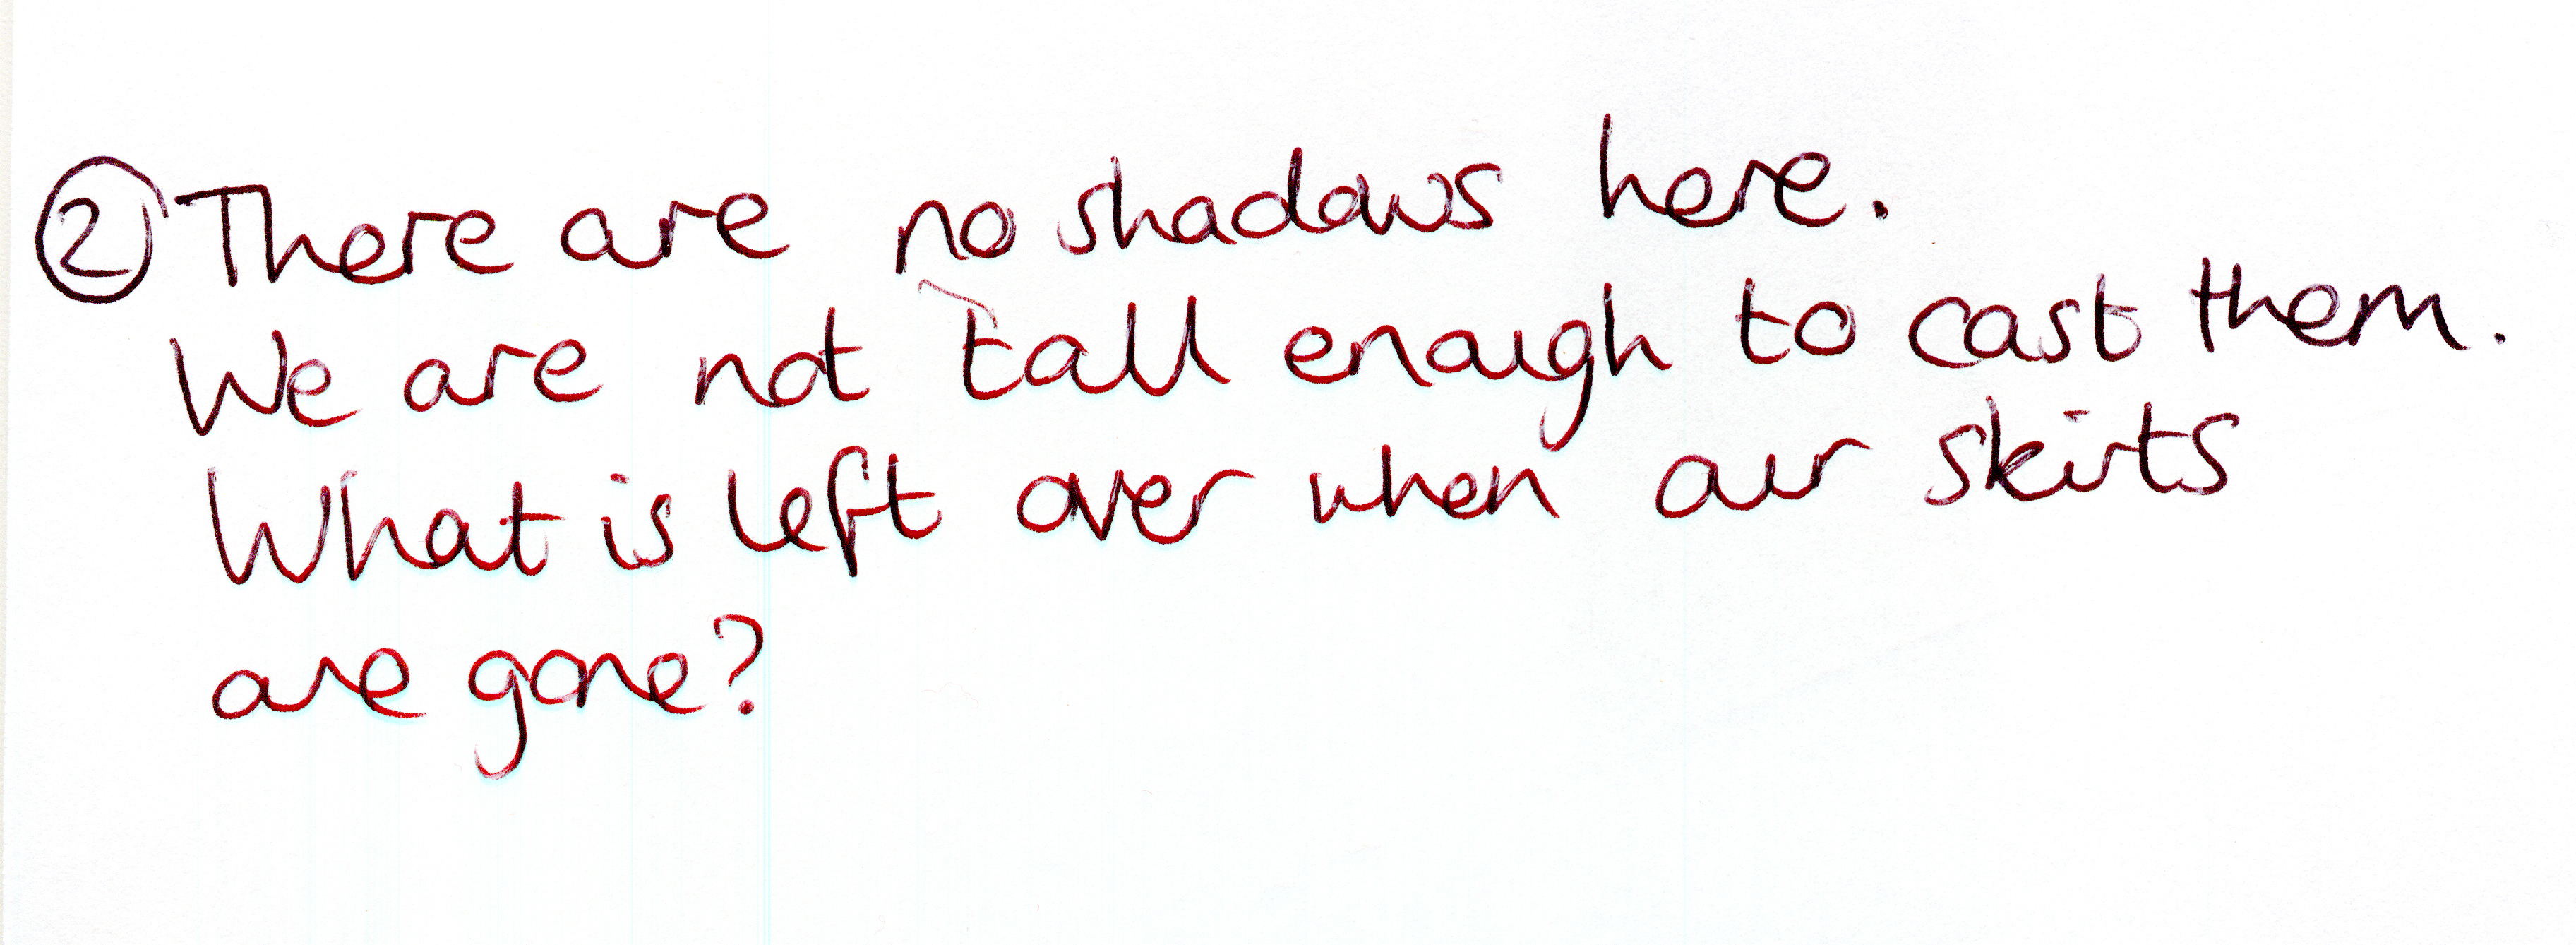 ② There are no shadows here.
We are not tall enough to cast them.
What is left over when our skirts
are gone?